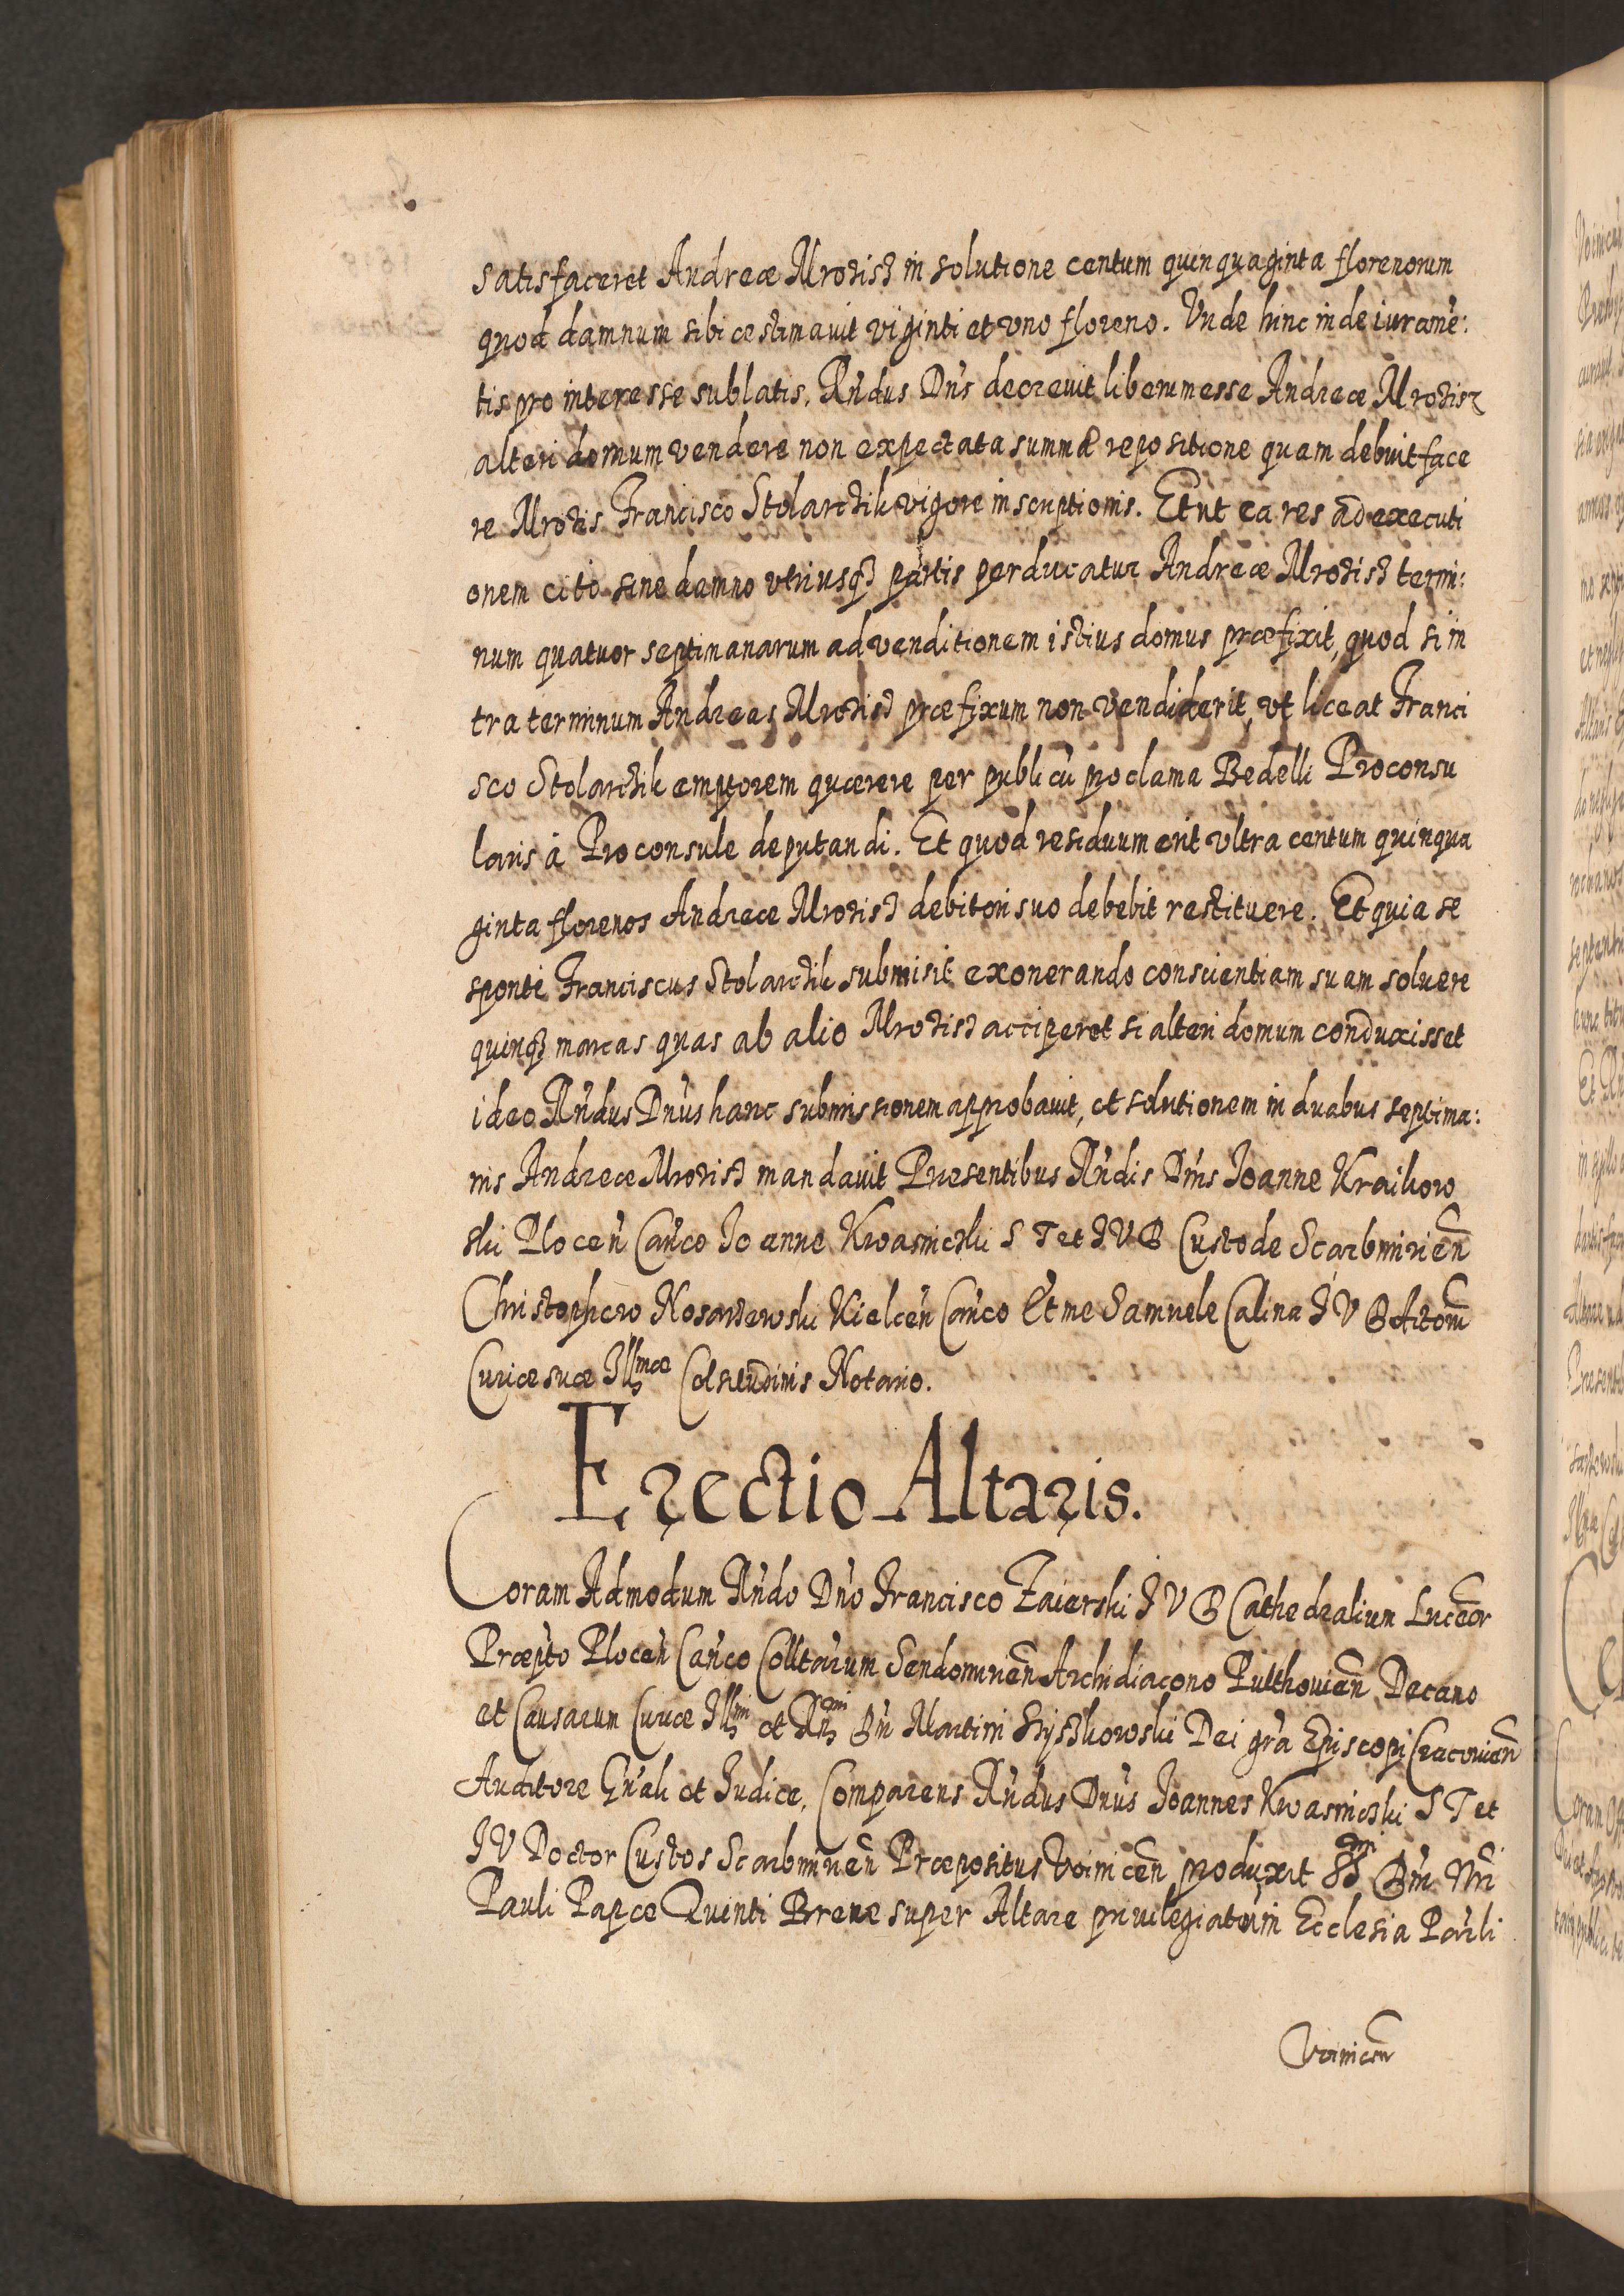 satisfaceret Andreæ Mroziss in solutione centum quinquaginta florenorum
quod damnum sibi æstimavit viginti et vno floreno. Vnde hinc inde iurame:
tis pro interesse sublatis. Rndus Dns decrevit liberum esse Andreæ Mrozisz
alteri domum vendere non expectata summæ repositione quam debuit face
re Mrozis Francisco Stolarczik vigore inscriptionis. Et ut ea res ad executi
onem cito sine damno vtriusq3 partis perducatur Andreæ Mrozisz termi:
num quatuor septimanarum ad venditionem istius domus præfixit, quod si in
tra terminum Andreas Mrozisz præfixum non vendiderit, vt liceat Franci
sco Stolarczik emptorem quærere per publicū proclama Bedelli Proconsu
laris à Proconsule deputandi. Et quod residuum erit vltra centum quinqua
ginta florenos Andreæ Mrozisz debitori suo debebit restituere. Et quia se
sponte Franciscus Stolarczik submisit exonerando conscientiam suam soluere
quinq3 marcas quas ab alio Mrozisz acciperet si alteri domum conduxisset
ideo Rndus Dnus hanc submissionem approbavit, et solutionem in duabus septima:
nis Andreæ Mrozisz mandavit Presentibus Rndis Dnis Ioanne Kraikow
ski Plocen Canco Ioanne Kwasniczki S T et I V D Custode Scarbimirien
Christophero Nosarzewski Kielcen Canco Et me Samuele Calina I V D Actorū
Curiæ suæ Illmæ Celsitudinis Notario.
Erectio Altaris.
Coram Admodum Rndo Dno Francisco Zaierski I V D Cathedralium Luceor
Præpto Plocen Canco Colltarum Sendomirien Archidiacono Pulthovien Decano
et Causarum Curiæ Illmi et Rmi Dni Martini Szyszkowski Dei gra Episcopi Cracovien
Auditore Gnali et Iudice. Comparens Rndus Dnus Ioannes Kwasniczki S T et
I V Doctor Custos Scarbimirien Præpositus Voinicen produxit Smi Dni Nri
Pauli Papæ Quinti Breve super Altare privilegiatum in Ecclesia Parli
Voinicen